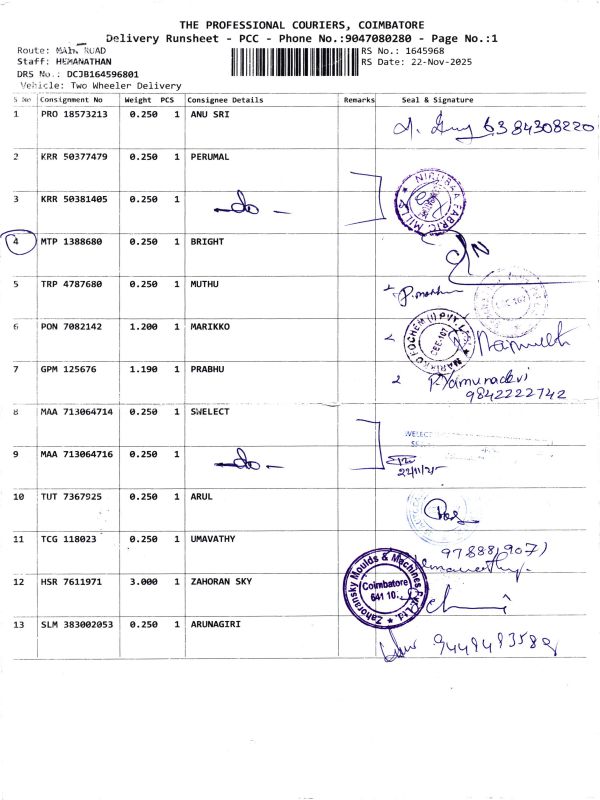 THE PROFESSIONAL COURIERS, COIMBATORE
Delivery Runsheet - PCC - Phone No.:9047080280 - Page No.:1
Route: MAIN ROAD RS No.: 1645968
Staff: HEMANATHAN RS Date: 22-Nov-2025
DRS No.: DCJB164596801
Vehicle: Two Wheeler Delivery
S No Consignment No Weight PCS Consignee Details Remarks Seal & Signature
1 PRO 18573213 0.250 1 ANU SRI 6384308220
2 KRR 50377479 0.250 1 PERUMAL
3 KRR 50381405 0.250 1 -do- FABRIC MILLS
4 MTP 1388680 0.250 1 BRIGHT
5 TRP 4787680 0.250 1 MUTHU
6 PON 7082142 1.200 1 MARIKKO
7 GPM 125676 1.190 1 PRABHU P. Yamunadevi
9842222742
8 MAA 713064714 0.250 1 SWELECT
9 MAA 713064716 0.250 1 -do- 22/11/25
10 TUT 7367925 0.250 1 ARUL
11 TCG 118023 0.250 1 UMAVATHY
12 HSR 7611971 3.000 1 ZAHORAN SKY Zahoransky Moulds & Machines Pvt. Ltd. Coimbatore
641 10
13 SLM 383002053 0.250 1 ARUNAGIRI